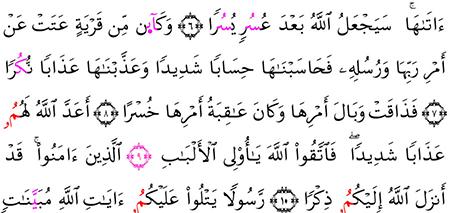 ءَاتَىٰهَاۚ سَيَجْعَلُ ٱللَّهُ بَعْدَ عُسُرٍ يُسُرًا ۝٦ وَكَآئِن مِّن قَرْيَةٍ عَتَتْ عَنْ
أَمْرِ رَبِّهَا وَرُسُلِهِۦ فَحَاسَبْنَٰهَا حِسَابًا شَدِيدًا وَعَذَّبْنَٰهَا عَذَابًا نُكُرًا
۝٧ فَذَاقَتْ وَبَالَ أَمْرِهَا وَكَانَ عَٰقِبَةُ أَمْرِهَا خُسْرًا ۝٨ أَعَدَّ ٱللَّهُ لَهُمُۥ
عَذَابًا شَدِيدًاۖ فَٱتَّقُوا۟ ٱللَّهَ يَٰٓأُو۟لِى ٱلْأَلْبَٰبِ ۝٩ ٱلَّذِينَ ءَامَنُوا۟ۚ قَدْ
أَنزَلَ ٱللَّهُ إِلَيْكُمُۥ ذِكْرًا ۝١٠ رَّسُولًا يَتْلُوا۟ عَلَيْكُمُۥ ءَايَٰتِ ٱللَّهِ مُبَيَّنَٰتٍ